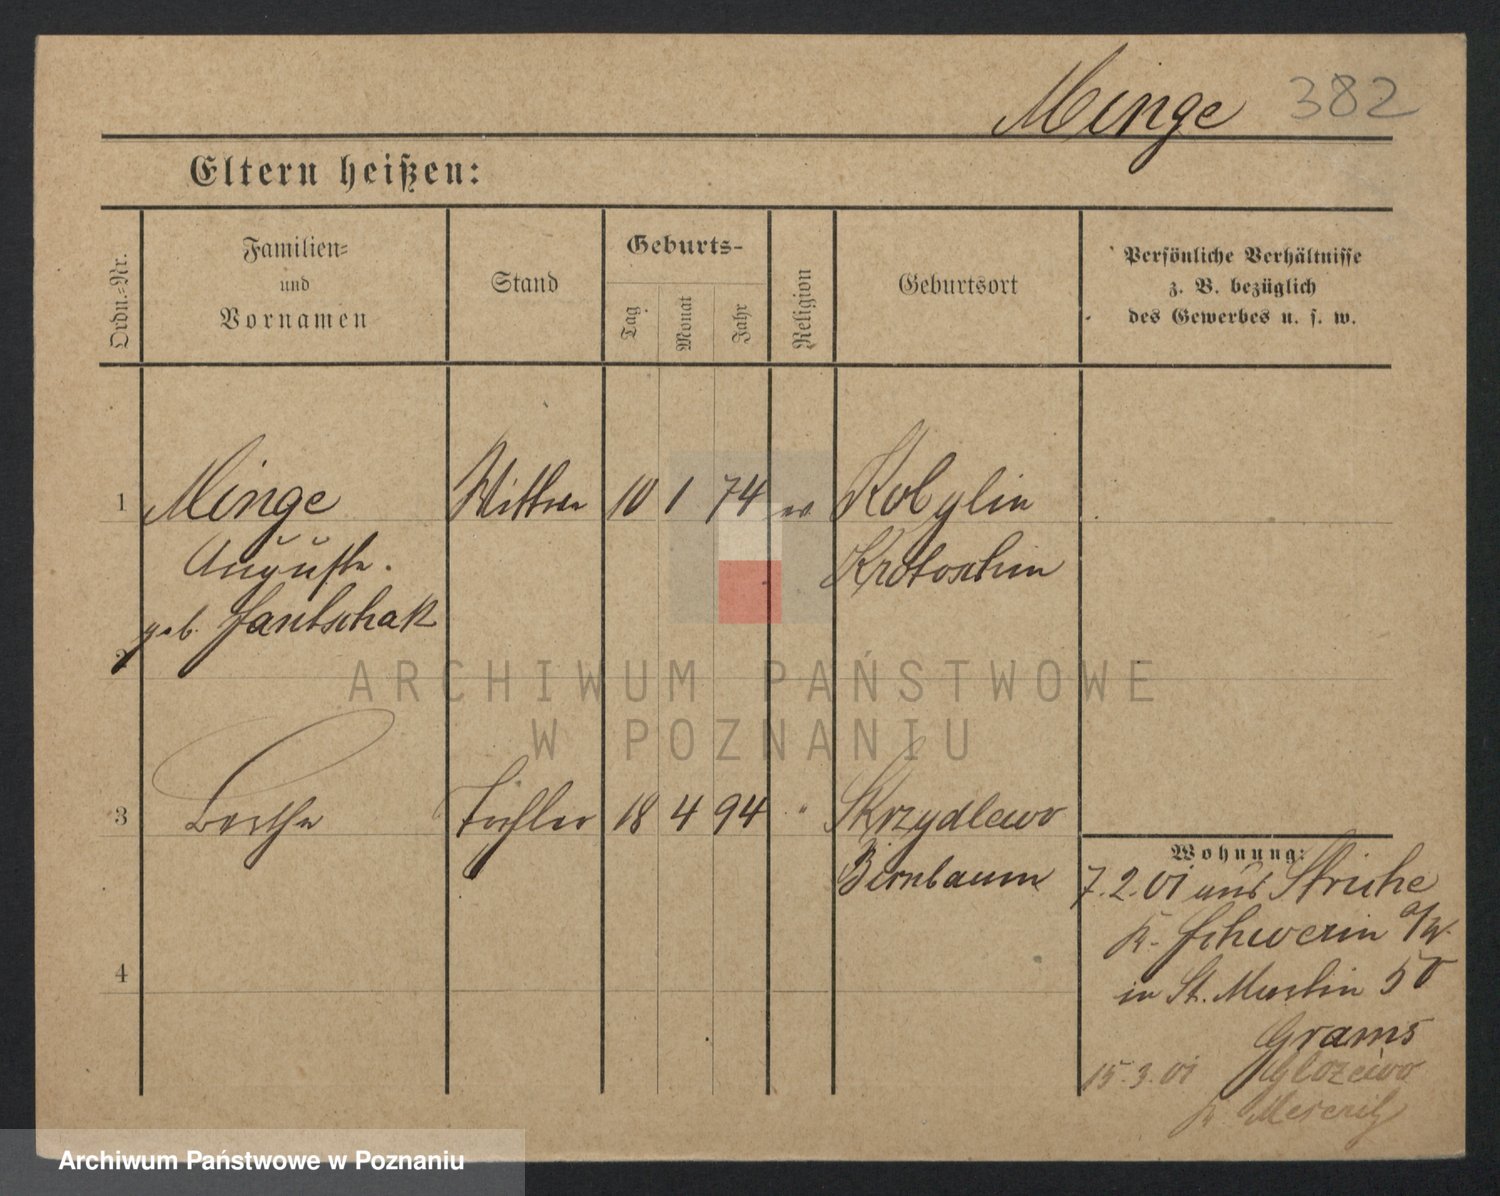 Minge 382
Eltern heißen:
Ordn.-Nr.
Familien-
und
Vornamen
Stand
Geburts-
Tag
Monat
Jahr
Religion
Geburtsort
Persönliche Verhältnisse
z. B. bezüglich
des Gewerbes u. s. w.
1 Minge Wittwe 10 1 74 ev Kobylin
Auguste. Krotoschin
geb. Jantschak
2
3 Berthe Tochter 18 4 94 " Skrzydlewo
Birnbaum
Wohnung:
7.2.01 aus Striche
K. Schwerin a/W.
4
in St. Martin 50
Grams
15.3.01 Glozewo
K. Meseritz
ARCHIWUM PAŃSTWOWE
W POZNANIU
Archiwum Państwowe w Poznaniu